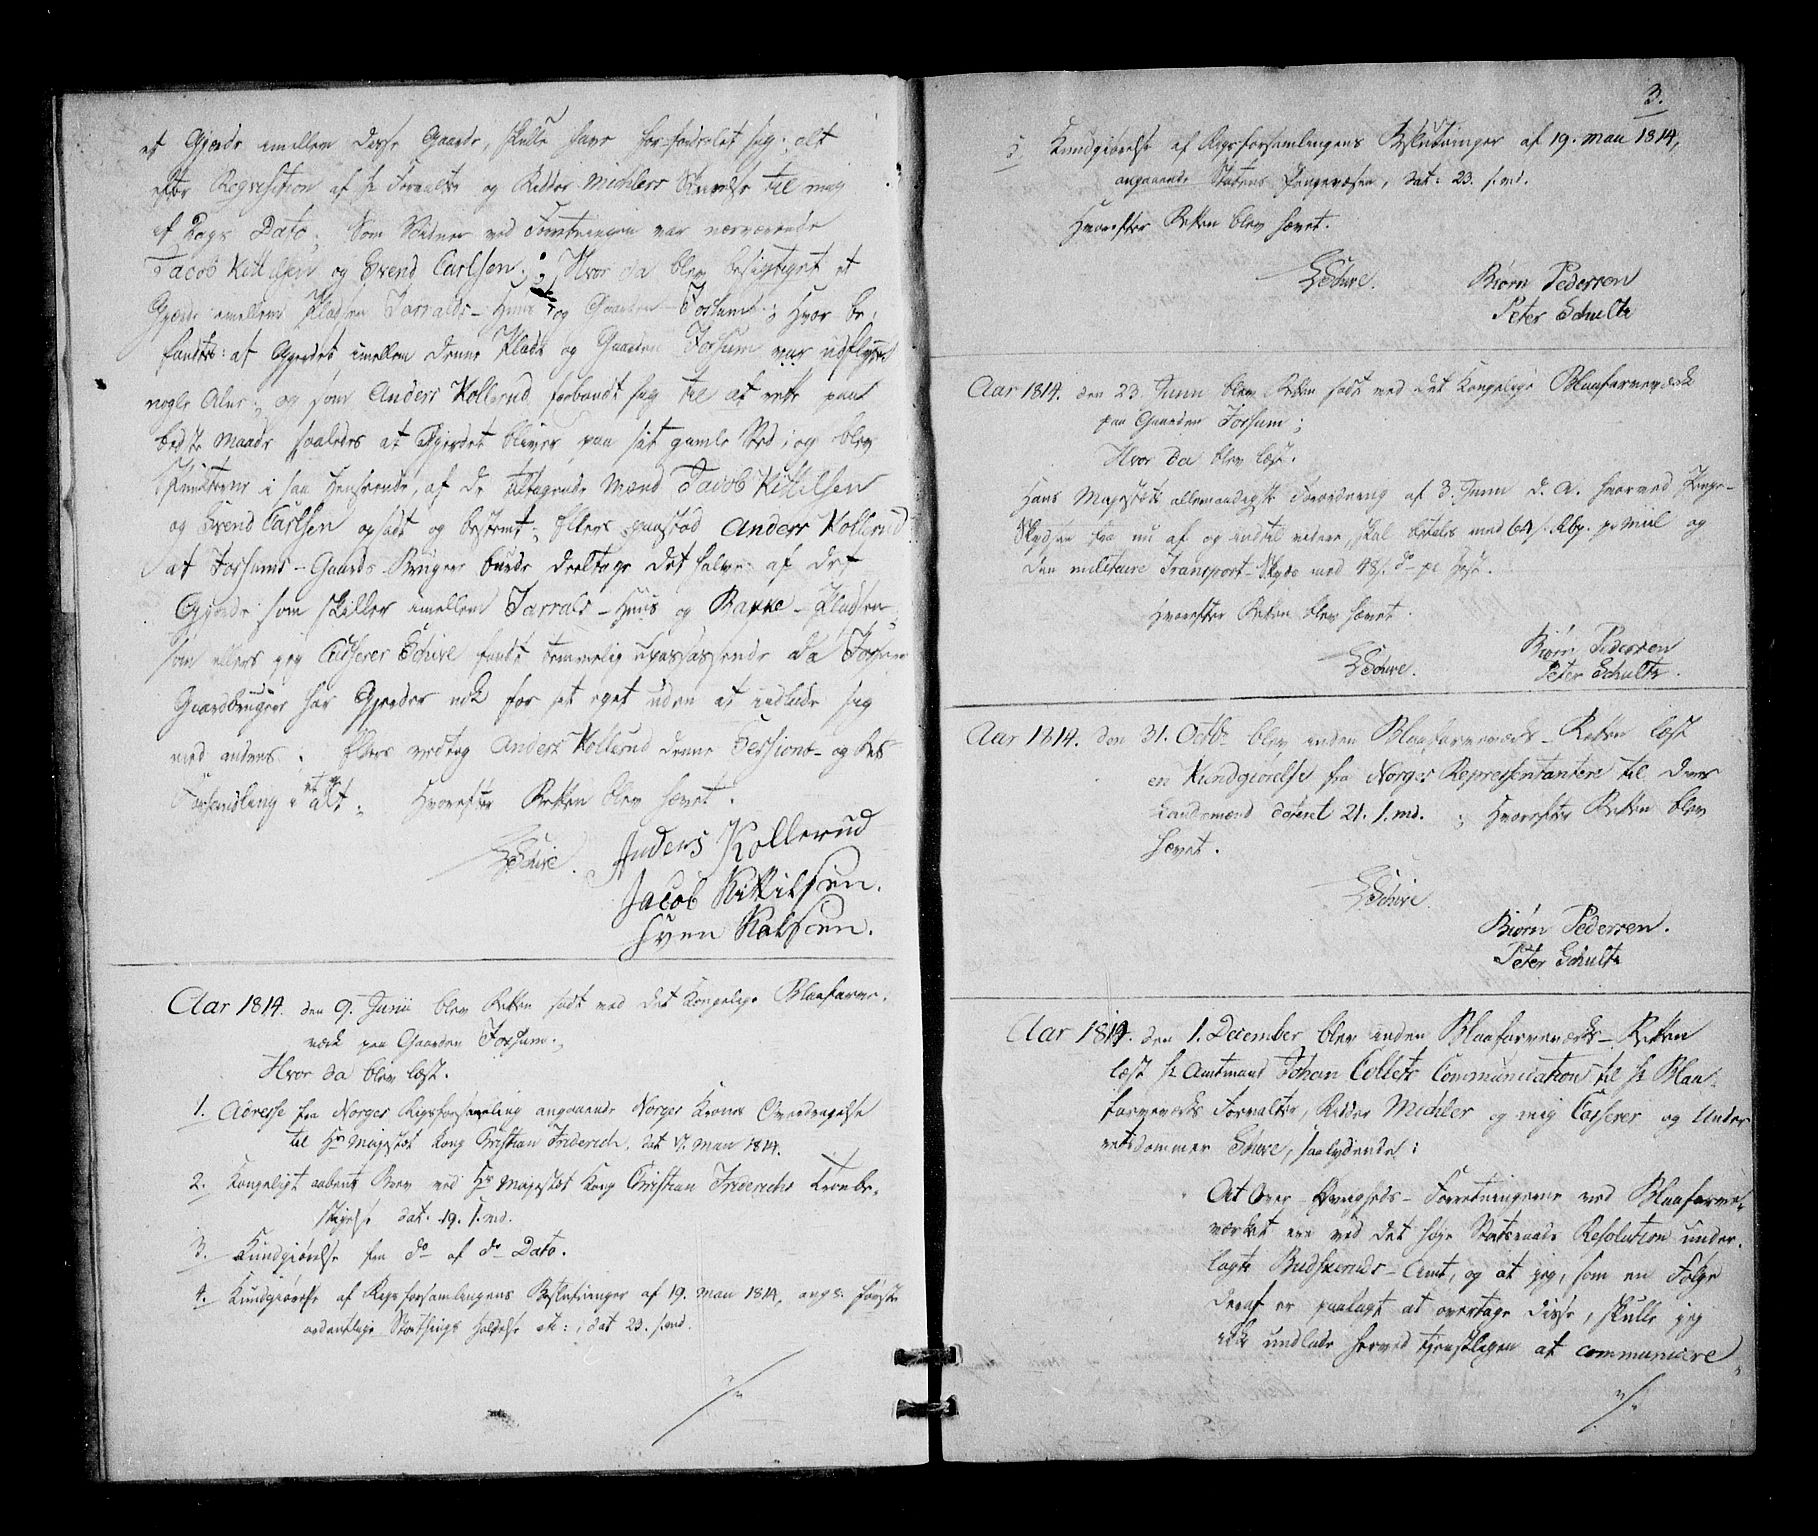 et Gjerde imellem disse Gaarde, skulle have forfondslet sig: alt
efter Reqvisition af Hr Forvalter og Ridder Michlers Skrivelse til mig
af Dags Dato; Som Vidner ved Forretningen var nærværende
Jacob Kittilsen og Svend Carlsen. Hvor da blev besigtiget et
Gjerde imellem Pladsen Jarralds-Huus og Gaarden Fossum; Hvor be-
fandtes: at Gjerdet imellem denne Plads og Gaarden Fossum var udflyttet
nogle Alne; og som Anders Kollerud forbandt sig til at rette paa
bedste Maade saaledes at Gjerdet bliver paa sit gamle Sted; og blev
i saa Henseende, af de tiltagende Mænd Jacob Kittilsen
og Svend Carlsen opsadt og bestemt; Ellers paastod Anders Kollerud
at Fossums-Gaards Bruger burde deeltage det halve af det
Gjerde som skiller imellem Jarralds-Huus og Bakke-Pladsen,
som ellers jeg Casserer Schive fandt temmelig upassassende da Fossum
Gaardbruger har Gjerder nok for sit eget uden at indlade sig
med andres. Ellers vedtog Anders Kollerud denne Sessions- og dets
Forhandling i et og alt; Hvorefter Retten blev hævet.
Schive. Anders Kollerud
Jacob Kittilsen.
Sven Kalsen.
Aar 1814. den 9. Junii blev Retten sadt ved det Kongelige Blaafarve-
værk paa Gaarden Fossum.
Hvor da blev læst.
1. Adresse fra Norges Rigsforsamling angaaende Norges Krones Overdragelse
til Hs Majestæt Kong Christian Friderich, dat 17. Maii 1814.
2. Kongeligt aabent Brev ved Hs Majestæt Kong Christian Friderichs Tronbe-
stigelse dat. 19. s. md.
3. Kundgiørelse fra do af do Dato.
4. Kundgiørelse af Rigsforsamlingens Beslutninger af 19. Maii 1814, ang: første
ordentlige Storthings Holdelse etc:, dat 23. s. md.
3.
5 Kundgiørelse af Rigsforsamlingens Beslutninger af 19. Maii 1814,
angaaende Statens Pengevæsen, dat: 23. s. md.
Hvorefter Retten blev hævet.
Schive. Biørn Pedersen
Peter Schultz
Aar 1814. den 23. Junii blev Retten sadt ved det Kongelige Blaafarveværk
paa Gaarden Fossum;
Hvor da blev læst.
Hans Majestæts allernaadigste Forordning af 3. Junii d. A. hvorved
Skydsen fra nu af og indtil videre, skal betales med 64 s. Rbp. pr Miil og
den militaire Transport-Skyds med 48 s. do pr Hest.
Hvorefter Retten blev hævet.
Schive. Biørn Pedersen
Peter Schultz.
Aar 1814. den 31. Octbr blev inden Blaafarveværks-Retten læst
en Kundgiørelse fra Norges Representantere til deres
Landsmænd dateret 21. s. md.; Hvorefter Retten blev
hævet.
Schive. Biørn Pedersen.
Peter Schultz
Aar 1814. den 1. December blev inden Blaafarveværks-Retten
læst Hr Amtmand Johan Collets Communication til Hr Blaa-
farveværks Forvalter, Ridder Michler og mig Casserer og Under-
retsdommer Schive, saalydende:
At Over-Øvrigheds-Forretningerne ved Blaafarve-
værket ere ved det høie Statsraads Resolution under-
lagte Budskeruds-Amt, og at jeg, som en Følge
deraf er paalagt at overtage disse, skulle jeg
ikke undlade herved tjenstligen at communicere